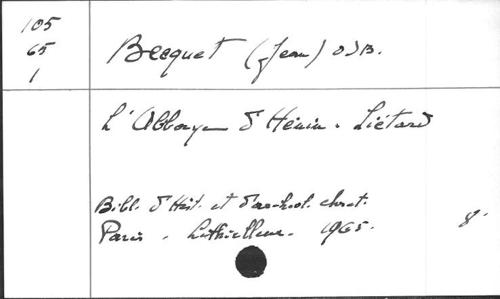 105
65
1
Becquet (Jean) OSB.
L'Abbaye d'Hénin-Liétard
Bibl. d'Hist. et d'archéol. chrét.
Paris. Lethielleux. 1965. 8°